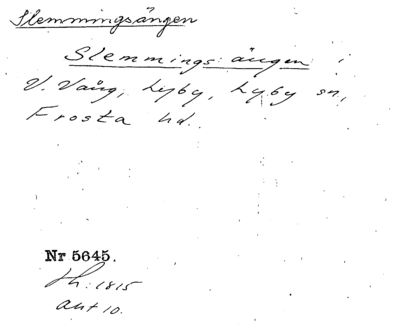 Slemmingsängen
Slemmings: ängen i
V. Vång, Lyby, Lyby sn,
Frosta hd.
Nr 5645.
1815
akt 10.